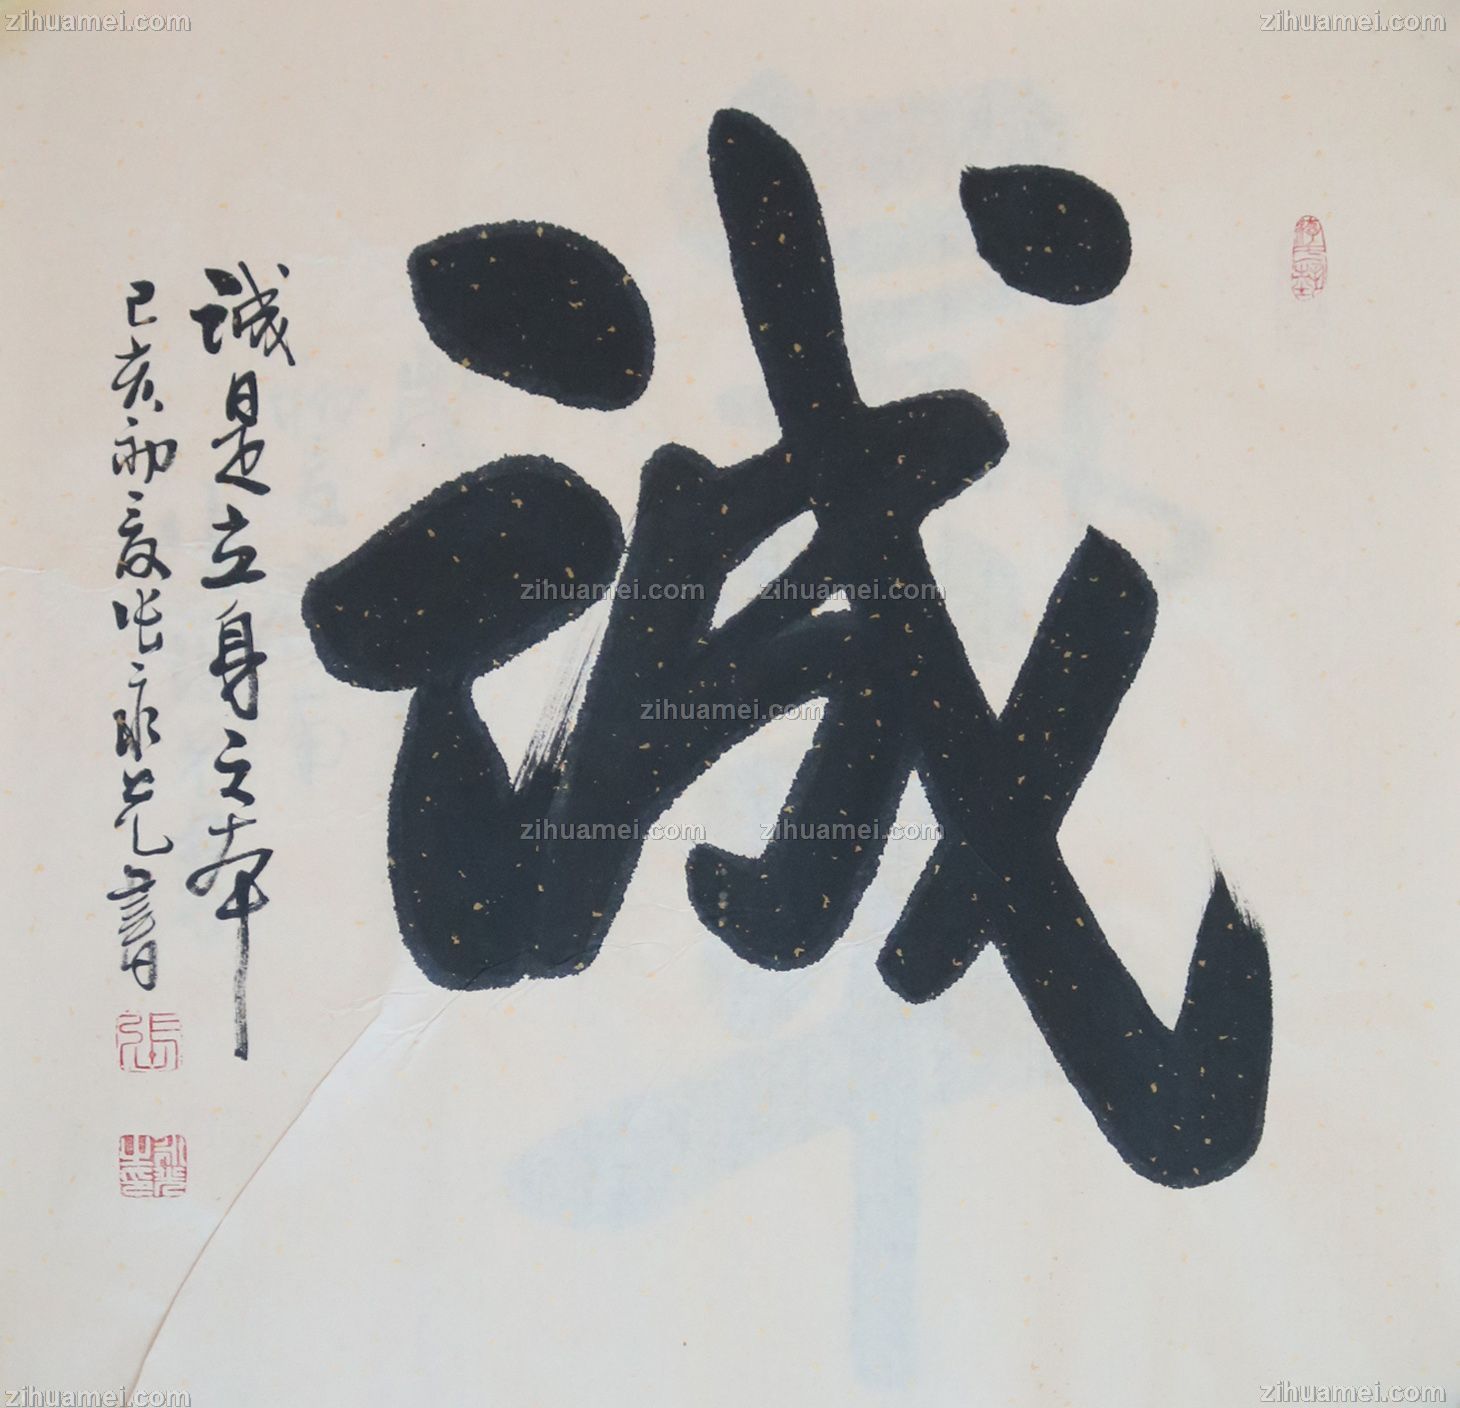 zihuamei.com
zihuamei.com
誠
誠是立身之本
己亥初夏张永光書
張
zihuamei.com
zihuamei.com
zihuamei.com
zihuamei.com
zihuamei.com
zihuamei.com
zihuamei.com